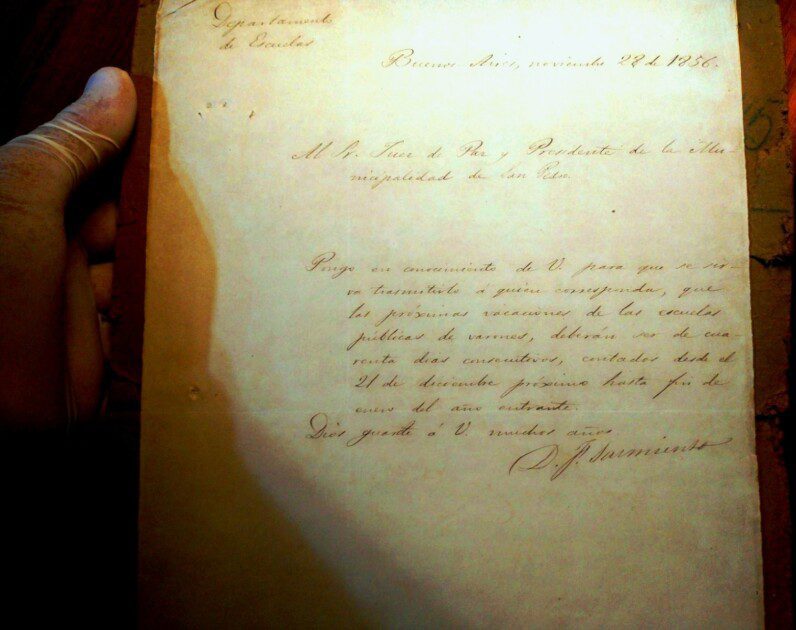 Departamento
de Escuelas
Buenos Aires, noviembre 28 de 1856.
Al Sr. Juez de Paz y Presidente de la Mu-
nicipalidad de San Pedro
Pongo en conocimiento de V. para que se sir-
va trasmitirlo á quien corresponda, que
las próximas vacaciones de las escuelas
públicas de varones, deberán ser de cua-
renta dias consecutivos, contados desde el
21 de diciembre próximo hasta fin de
enero del año entrante.
Dios guarde á V. muchos años.
D. F. Sarmiento